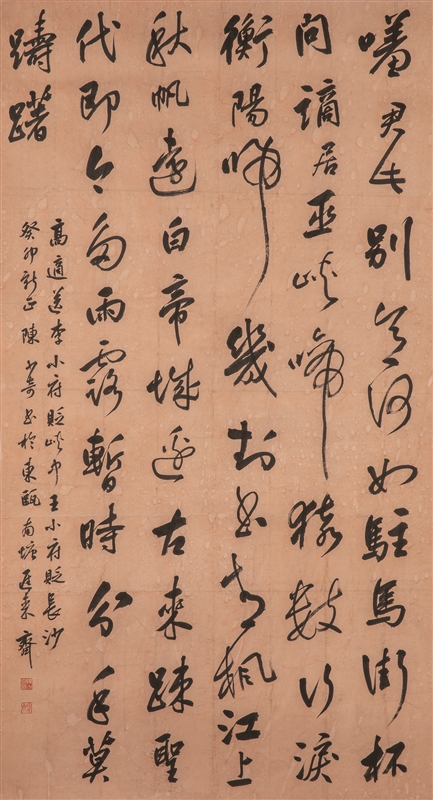 嗟君此別意何如駐馬銜杯
問謫居巫峽啼猿數行淚
衡陽歸幾封書青楓江上
秋帆遠白帝城邊古來踈聖
代即今多雨露暫時分手莫
躊躇
高適送李小府貶峽中王小府貶長沙
癸卯新正陳少奇書於東甌南塘遲來齋